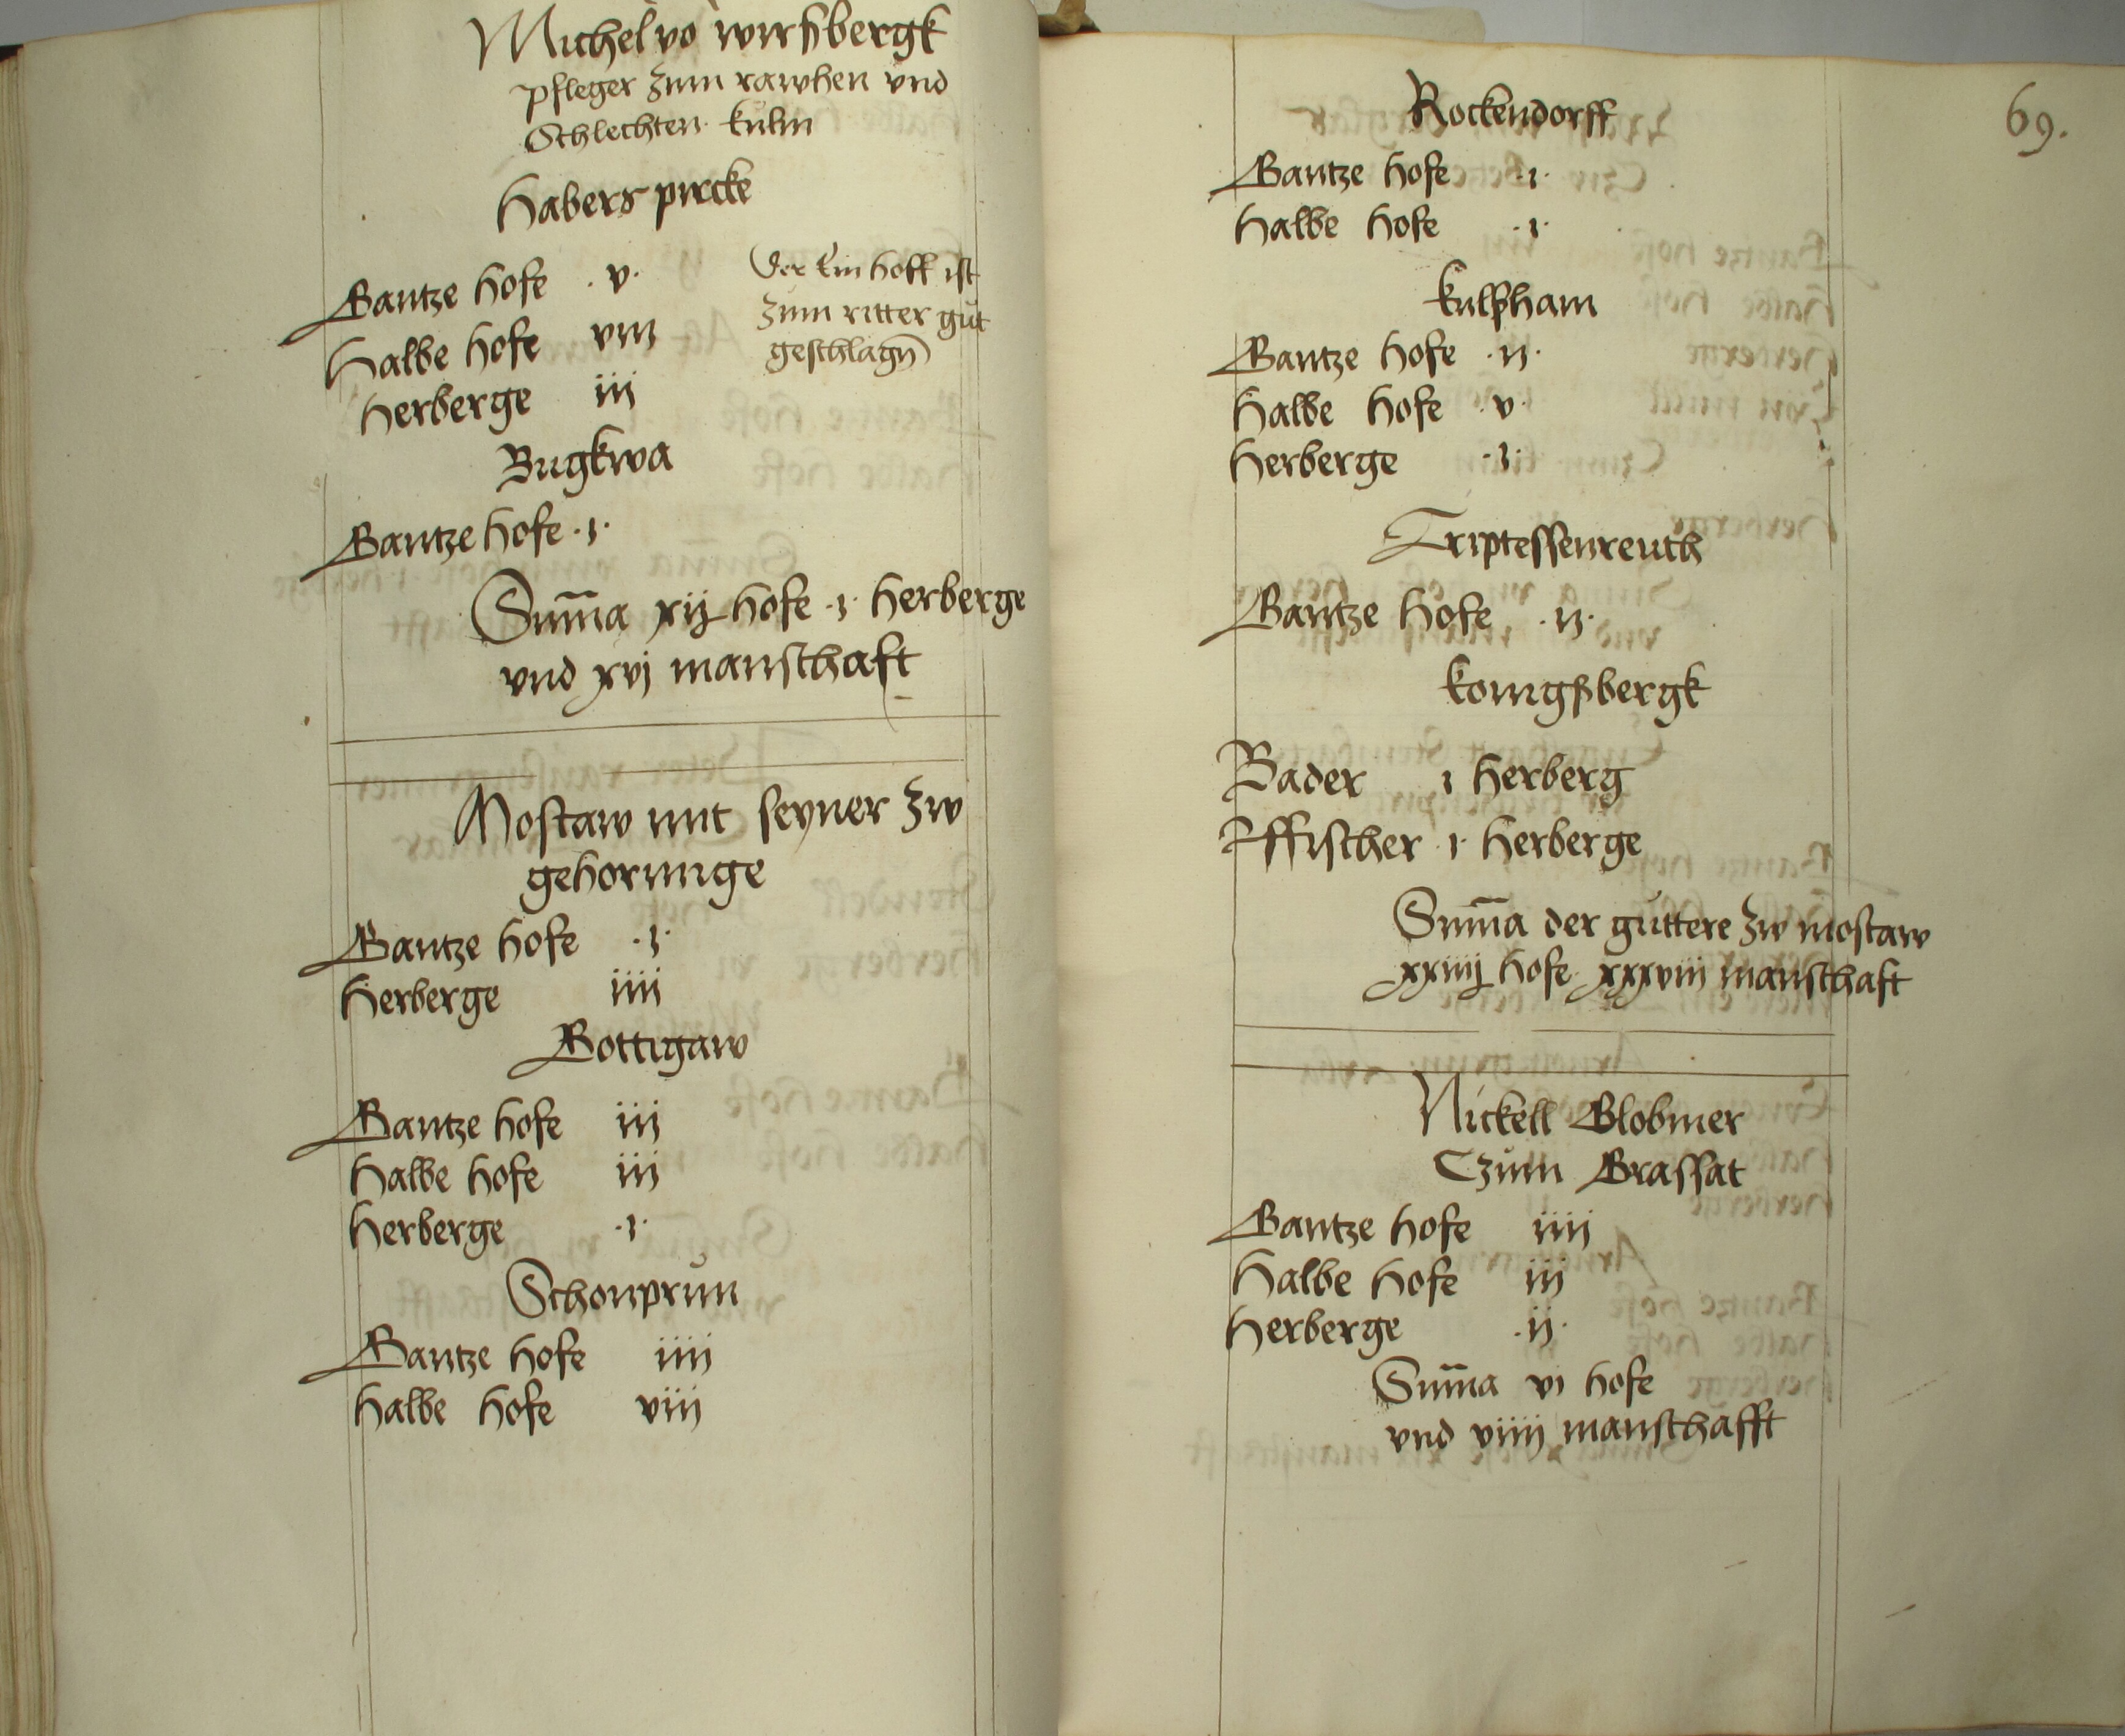 Michel vo wirsbergk
pfleger zum rawhen vnd
Schlechten kulm
Habers pircke
Gantze hofe .v. Der Ein hoff ist
zum ritter gut
geschlagn
Halbe hofe viij
Herberge iij
Bugkwa
Gantze hofe .j.
Suma xij hofe .j. herberge
vnd xvj manschaft
Mostaw mit seyner zw
gehorunge
Gantze hofe .j.
Herberge iiij
Rottigaw
Gantze hofe iij
Halbe hofe iij
Herberge .j.
Schonprun
Gantze hofe iiij
Halbe hofe viij
69.
Rockendorff
Gantze hofe .j.
Halbe hofe .j.
kulsham
Gantze hofe .ij.
Halbe hofe .v.
Herberge .j.
Triptessenreuth
Gantze hofe .ij.
konigsbergk
Bader j herberg
Ffischer .j. herberge
Suma der guttere zw mostaw
xxiiij hofe xxxviij manschaft
Nickell Globmer
Czum Grassat
Gantze hofe iiij
Halbe hofe iij
Herberge .ij.
Suma vj hofe
vnd viiij manschafft